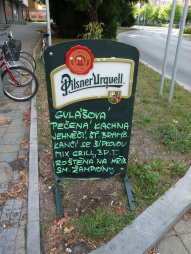 Pilsner Urquell
GULÁŠOVÁ
PEČENÁ KACHNA
JEHNĚČÍ, ŠT. BRAMB.
KANČÍ SE ŠÍPKOVOU
MIX GRILL, B.R.T.
ROŠTĚNÁ NA HŘIB.
SM. ŽAMPIONY